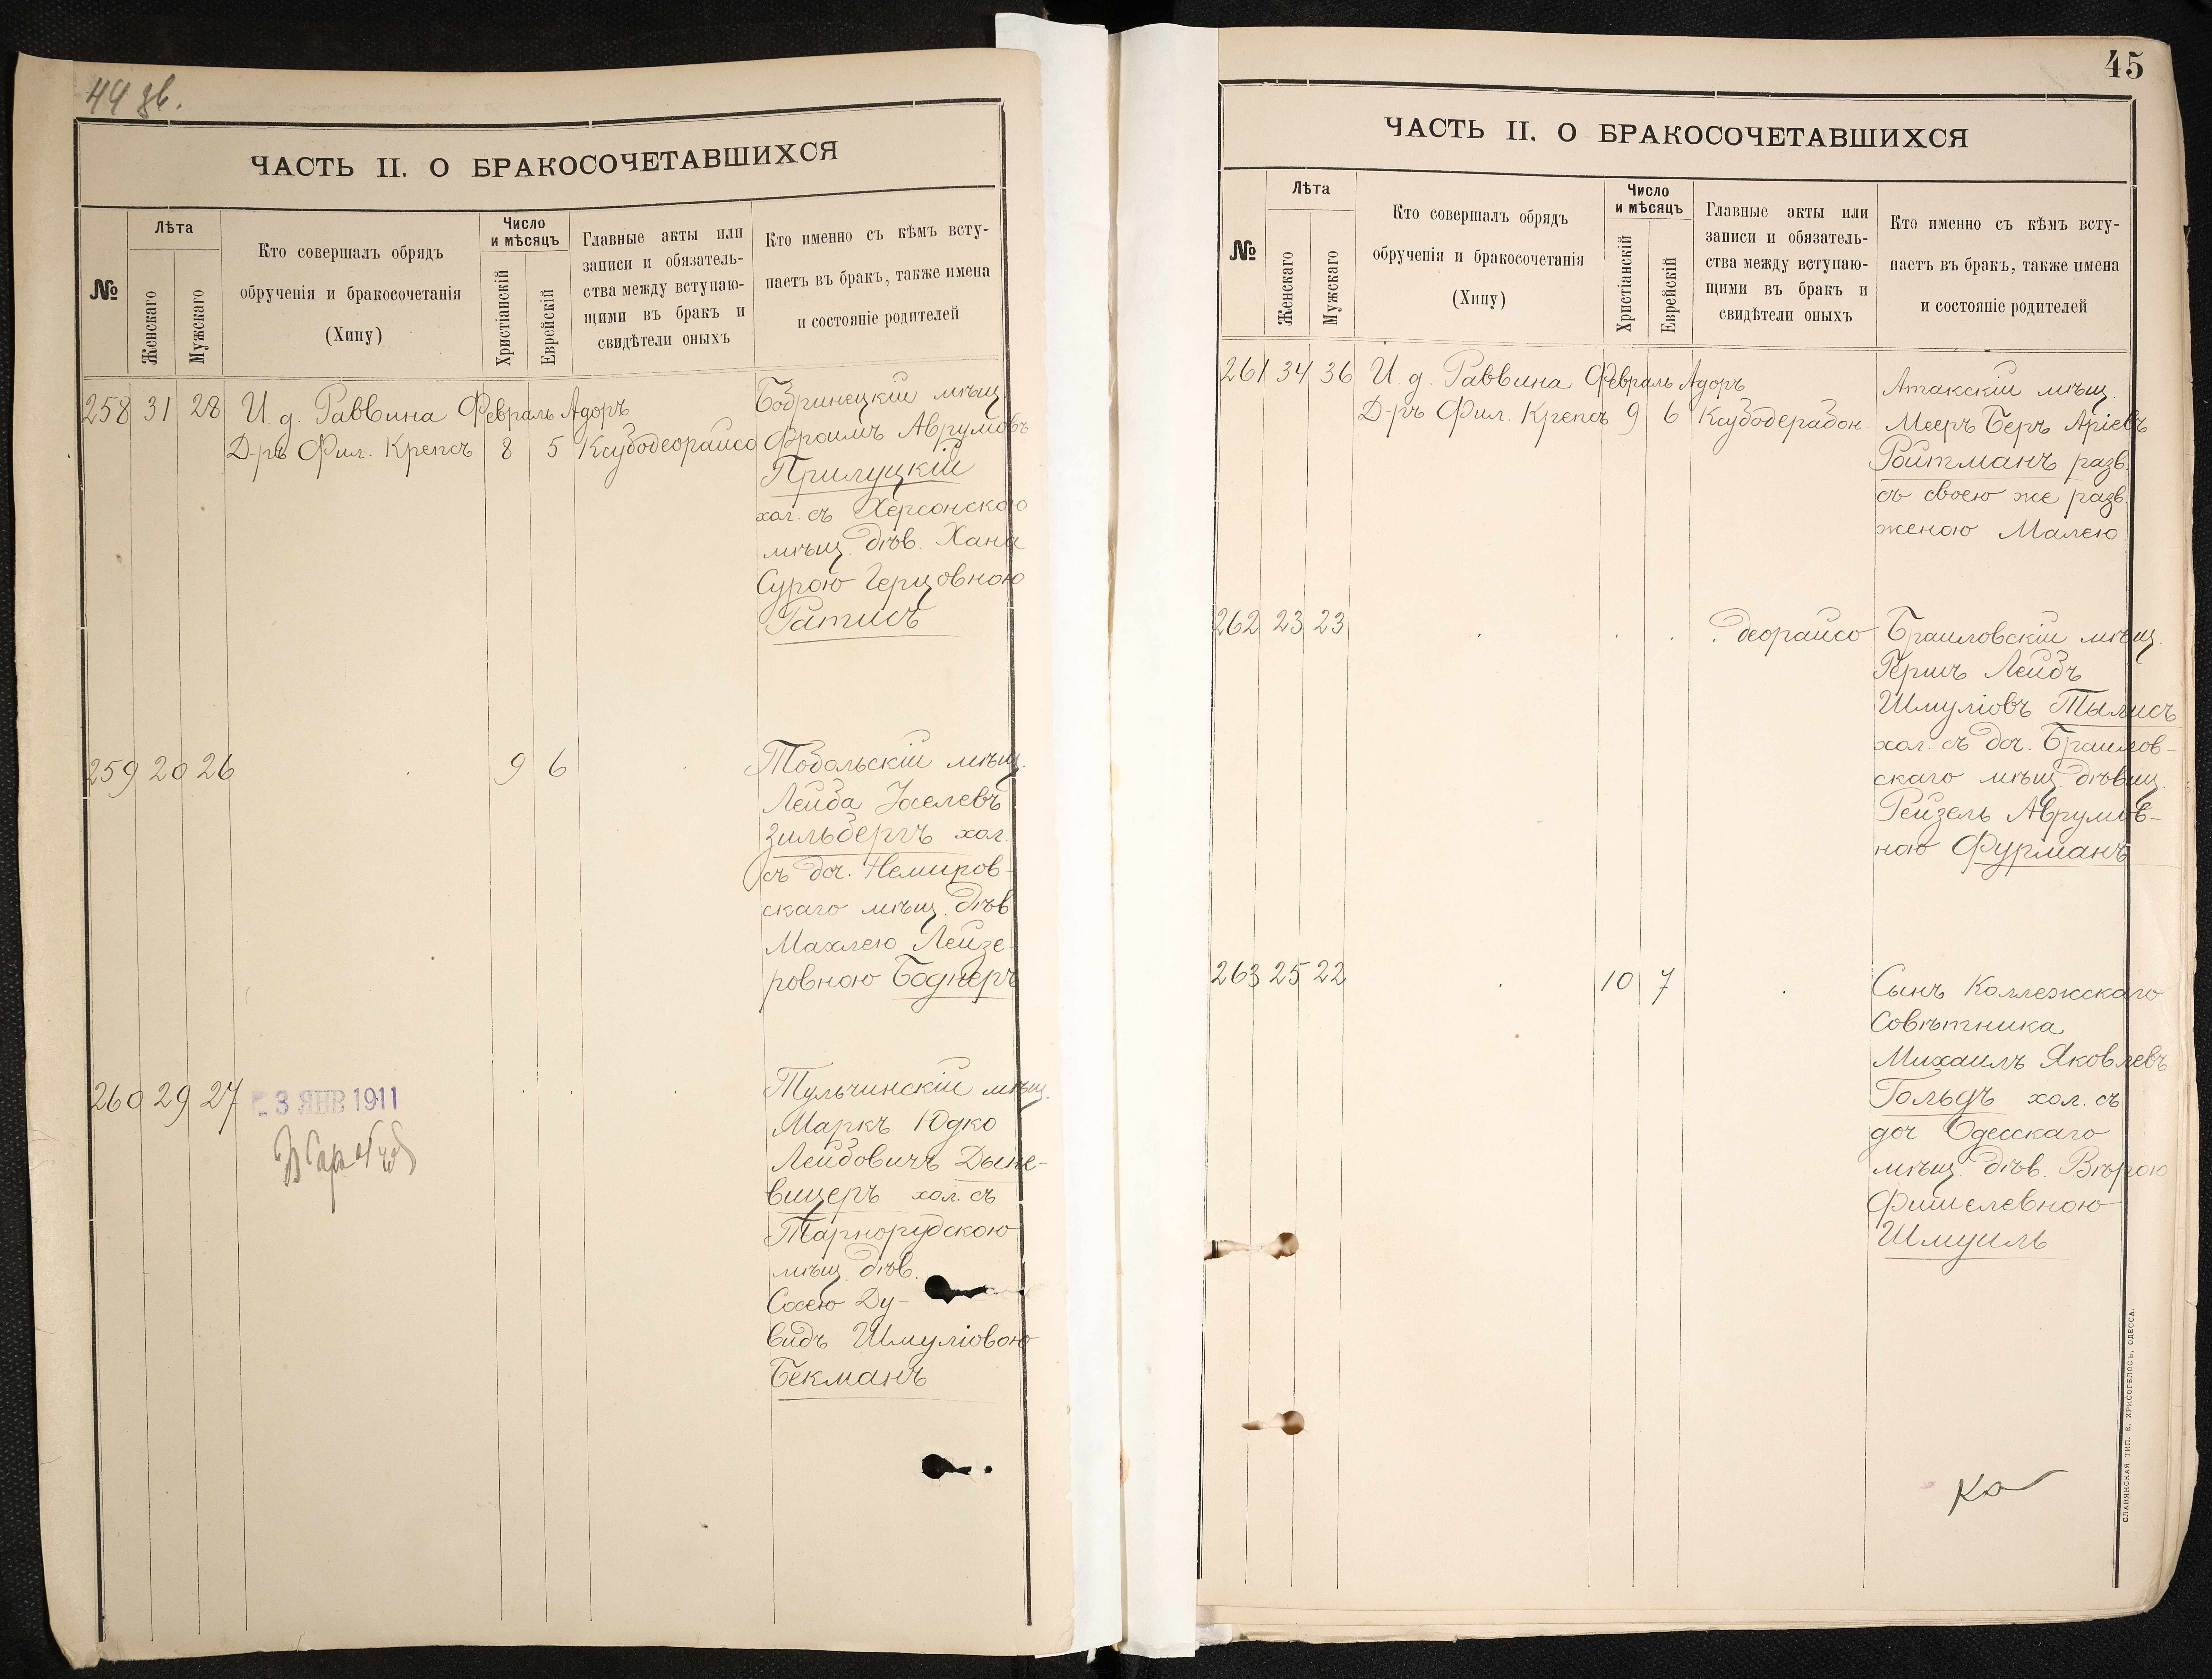 44 зв.
ЧАСТЬ II. О БРАКОСОЧЕТАВШИХСЯ
№
Лѣта
Женскаго
Мужскаго
Кто совершалъ обрядъ
обрученія и бракосочетанія
(Хипу)
Число
и мѣсяцъ
Христіанскій
Еврейскій
Главные акты или
записи и обязатель-
ства между вступаю-
щими въ бракъ и
свидѣтели оныхъ
Кто именно съ кѣмъ всту-
паетъ въ бракъ, также имена
и состояніе родителей
258 31 28 И. д. Раввина Февраль Адоръ
Д-ръ Фил. Крепсъ 8 5 Ксубодеорайсо
Бобринецкій мѣщ.
Фроимъ Аврумовъ
Прилуцкій
хол. съ Херсонскою
мѣщ. дѣв. Хана
Сурою Герцовною
Ратисъ
259 20 26 9 6
Тобольскій мѣщ.
Лейба Іоселевъ
Зильбергъ хол.
съ доч. Немиров-
скаго мѣщ. дѣв
Махлею Лейзе-
ровною Боднеръ
260 29 27
3 ЯНВ 1911
Тульчинскій мѣщ.
Маркъ Юдко
Лейбовичъ Дыне-
вицеръ хол. съ
Тарнорудскою
мѣщ. дѣв.
Сосею Ду-
бидъ Шмуліовою
Бекманъ
45
ЧАСТЬ II. О БРАКОСОЧЕТАВШИХСЯ
№
Лѣта
Женскаго
Мужскаго
Кто совершалъ обрядъ
обрученія и бракосочетанія
(Хипу)
Число
и мѣсяцъ
Христіанскій
Еврейскій
Главные акты или
записи и обязатель-
ства между вступаю-
щими въ бракъ и
свидѣтели оныхъ
Кто именно съ кѣмъ всту-
паетъ въ бракъ, также имена
и состояніе родителей
261 34 36 И. д. Раввина Февраль Адоръ
Д-ръ Фил. Крепсъ 9 6 Ксубодерабон.
Атакскій мѣщ.
Мееръ Беръ Аріевъ
Ройтманъ разв.
съ своею же разв.
женою Малею
262 23 23 деорайсо
Браиловскій мѣщ.
Гершъ Лейбъ
Шмуліовъ Тылисъ
хол. съ доч. Браилов-
скаго мѣщ. дѣвиц.
Рейзель Аврумов-
ною Фурманъ
263 25 22 10 7
Сынъ Коллежскаго
Совѣтника
Михаилъ Яковлевъ
Гольдъ хол. съ
доч. Одесскаго
мѣщ. дѣв. Вѣрою
Фишелевною
Шмуиль
СЛАВЯНСКАЯ ТИП. Е. ХРИСОГЕЛОСЪ, ОДЕССА.